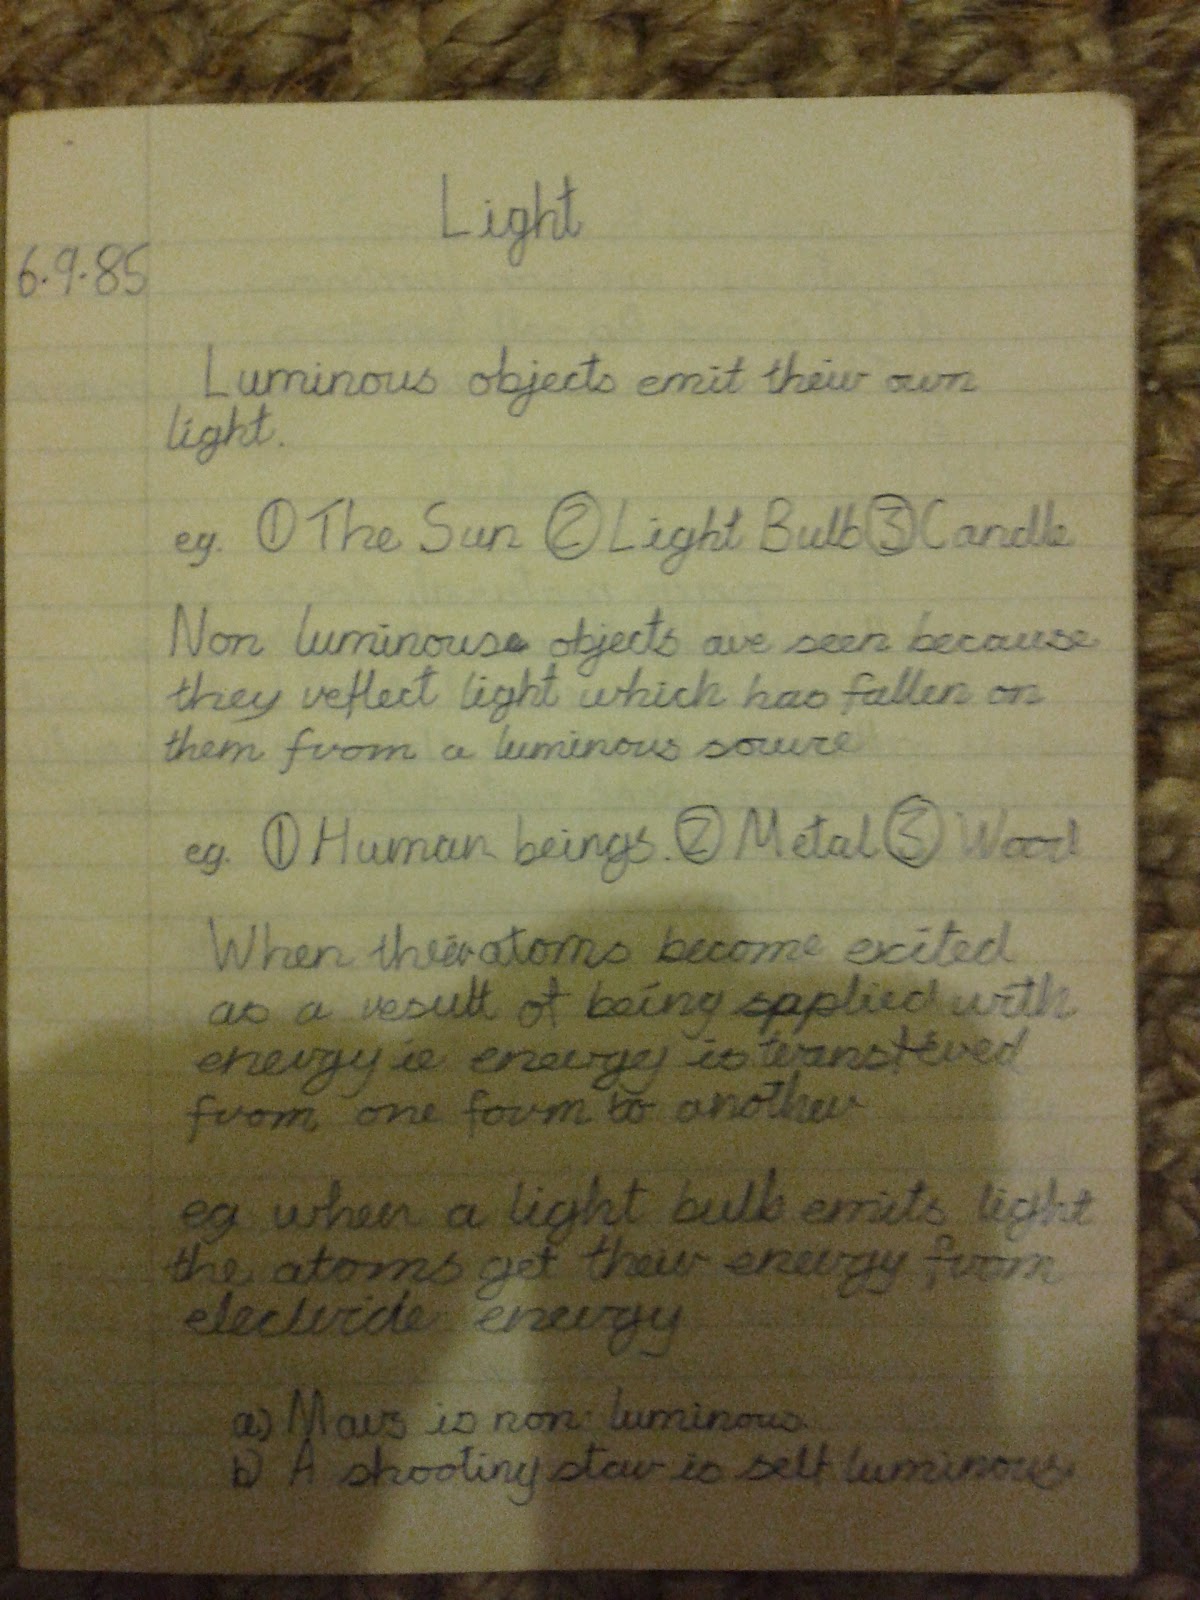 Light
6.9.85
Luminous objects emit their own
light.
eg. ① The Sun ② Light Bulb ③ Candle
Non luminouse objects are seen because
they reflect light which has fallen on
them from a luminous source
eg. ① Human beings. ② Metal ③ Wood
When their atoms become excited
as a result of being spplied with
energy ie energy is transfered
from one form to another
eg when a light bulb emits light
the atoms get their energy from
energy
a) Mars is non luminous.
b) A shooting star is self luminous.